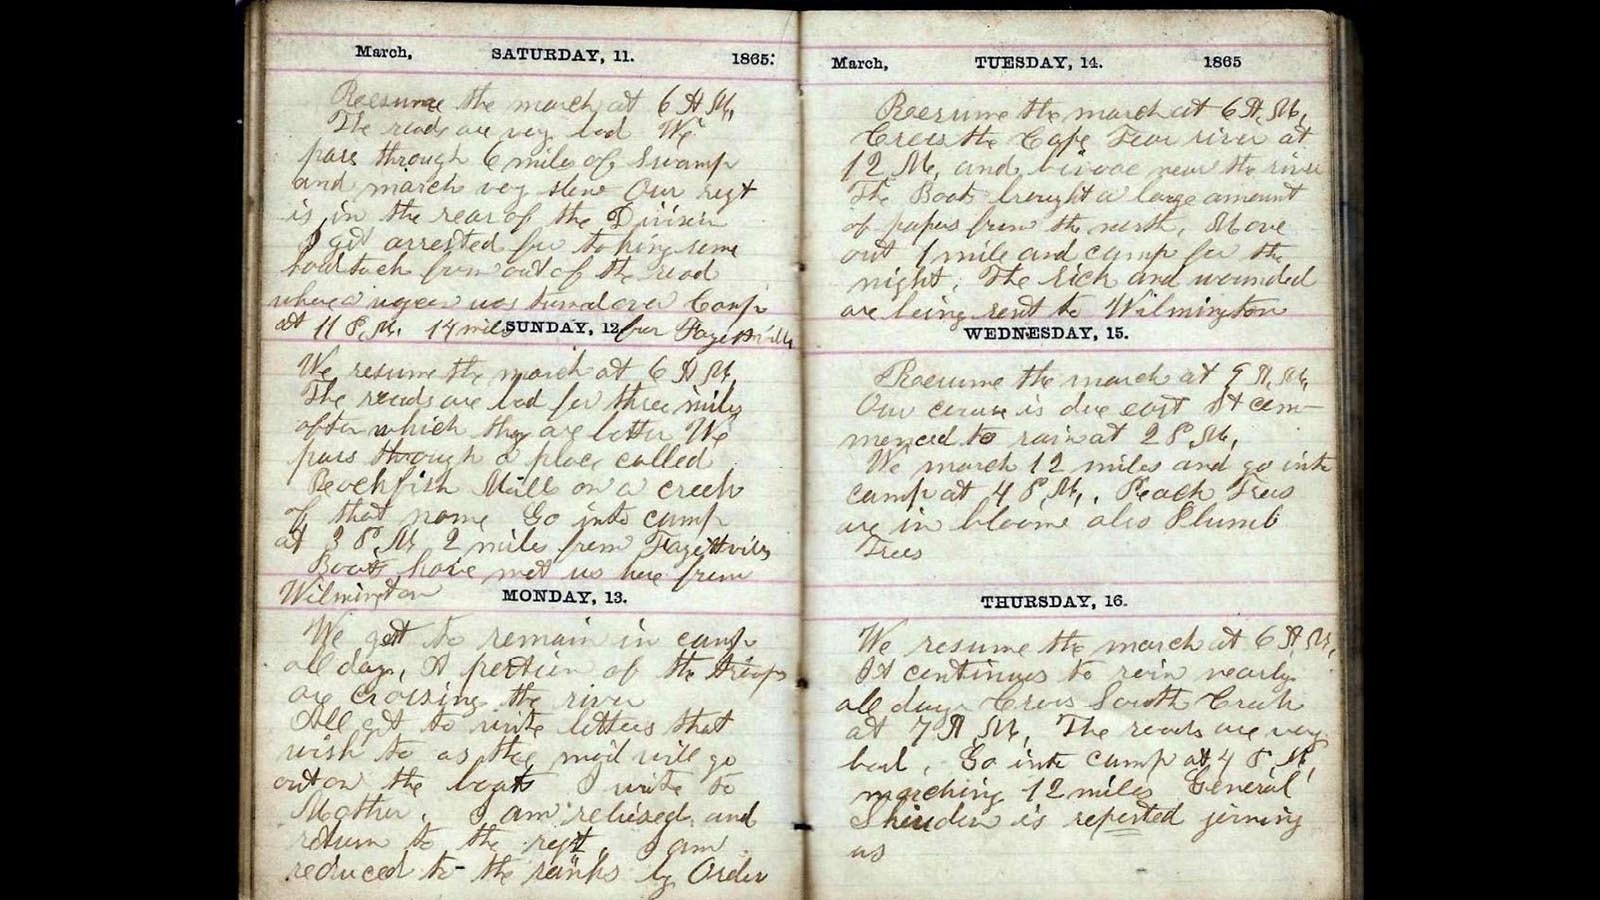 March, SATURDAY, 11. 1865.
Reesume the march at 6 A M,
The roads are very bad We
pass through 6 miles of Swamp
and march very slow Our regt
is in the rear of the Division
I get arrested for taking some
hardtack from out of the road
where a wagon was turned over Camp
at 11 P.M. 14 miles from Fayettville
SUNDAY, 12.
We resume the march at 6 A M,
The roads are bad for three miles
after which they are better We
pass through a place called
Rockfish Mill on a creek
of that name Go into camp
at 3 P.M 2 miles from Fayettville
Boats have met us here from
Wilmington
MONDAY, 13.
We get to remain in camp
all day, A portion of the troops
are crossing the river
All get to write letters that
wish to as the mail will go
out on the boats I write to
Mother. I am released and
return to the regt. I am
reduced to the ranks by Order
March, TUESDAY, 14. 1865
Reesume the march at 6 A, M,
Cross the Cape Fear river at
12 M, and bivoac near the river
The Boats brought a large amount
of papers from the north. Move
out 1 mile and camp for the
night. The sick and wounded
are being sent to Wilmington
WEDNESDAY, 15.
Reesume the march at 9 A, M,
Our course is due east It com-
menced to rain at 2 P, M,
We march 12 miles and go into
camp at 4 P, M,. Peach Trees
are in bloome also Plumb
Trees
THURSDAY, 16.
We resume the march at 6 A, M,
It continues to rain nearly
all day Cross South Creek
at 7 A, M, The roads are very
bad. Go into camp at 4 P M,
marching 12 miles General
is reported joining
us